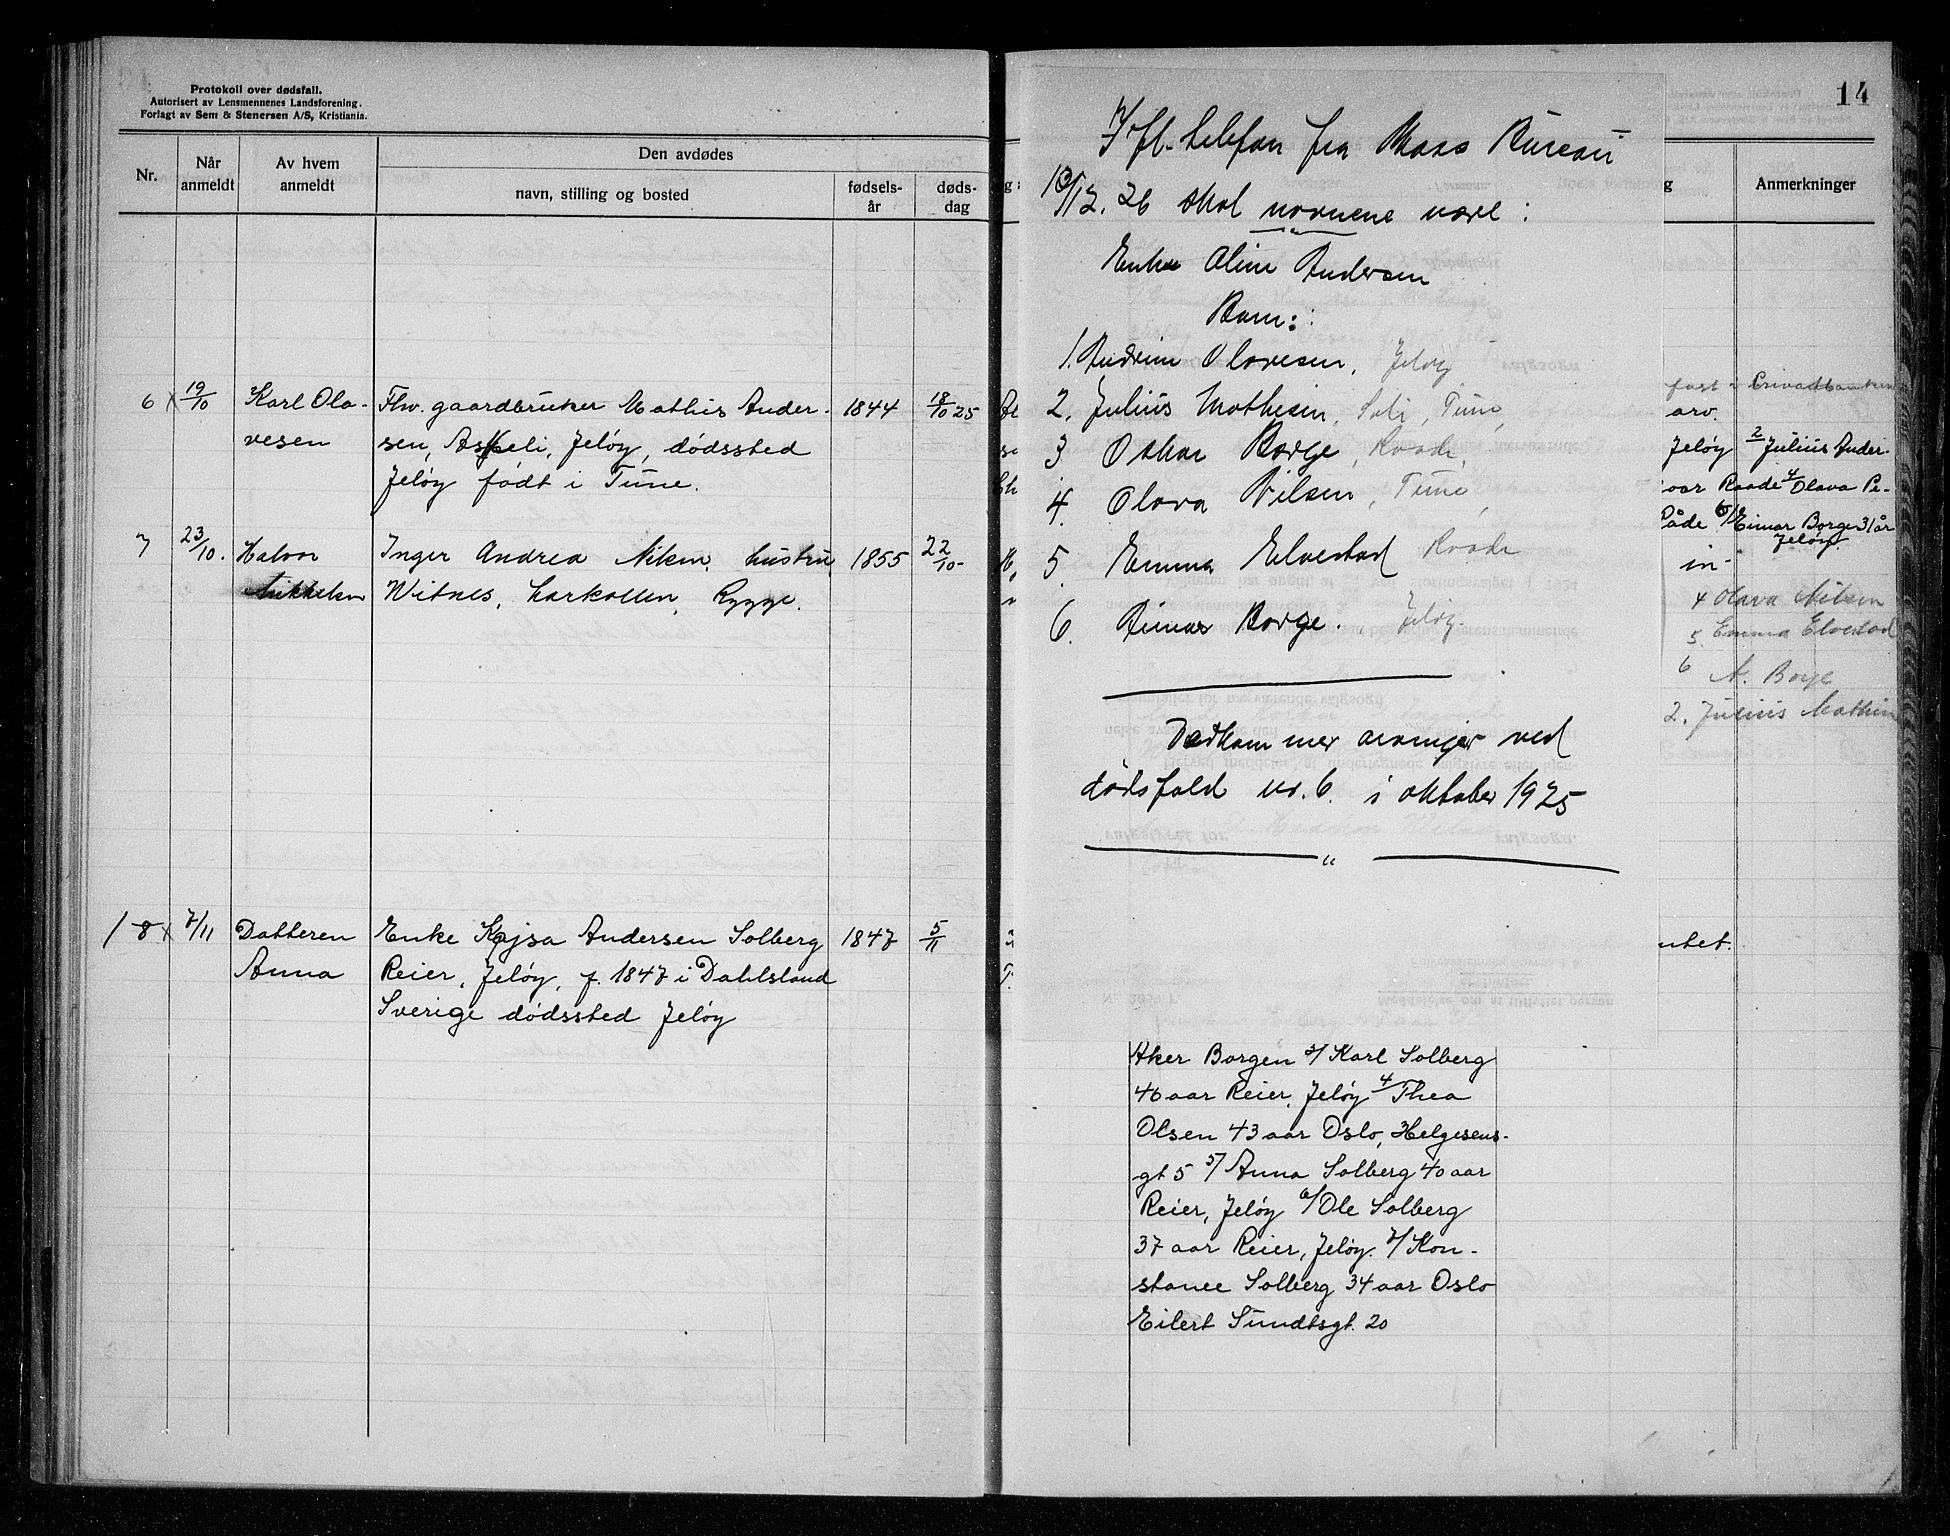 Protokoll over dødsfall.
Autorisert av Lensmennenes Landsforening.
Forlagt av Sem & Stenersen A/S, Kristiania.
Nr.
Når anmeldt
Av hvem anmeldt
Den avdødes
navn, stilling og bosted
fødsels-år
døds-dag
6 x 19/10
Karl Ola-
vesen
Fhv. gaardbruker Mathis Ander-
sen, Askeli, Jeløy, dødssted
Jeløy født i Tune.
1844
18/10 25
7
23/10.
Halvor
Mikkelsen
Inger Andrea Nilsen, hustru
Witnes, Larkollen, Rygge.
1855
22/10-
8 x 7/11
Datteren
Anna
Enke Kajsa Andersen Solberg
Reier, Jeløy, f. 1847 i Dahlsland
Sverige dødssted Jeløy
1847
5/11
14
Ifl. telefon fra Moss Bureau
13/12. 26 skal navnene være:
Enke Oline Andersen
Barn:
1. Andrine Olavesen, Jeløy
2. Julius Mathisen, Soli, Tune,
3 Oskar Borge, Raade,
4. Olava Nilsen, Tune,
5. Emma Elvestad Raade
6. Einar Borge. Jeløy.
Vedkommer arvinger ved
dødsfald nr. 6. i oktober 1925
"
Anmerkninger
fast
Privatbanken
arv.
Jeløy 2/ Julius Ander-
aar Raade 4/ Olava Pe-
Råde 6/ Einar Borge 31 år
Jeløy.
in-
4 Olava Nilsen
5. Emma Elvestad
6 A. Borge
2. Julius Mathisen
ntet.
Aker Borgen 3/ Karl Solberg
46 aar Reier, Jeløy 4/ Thea
Olsen 43 aar Oslo, Helgesens-
gt 5 5/ Anna Solberg 40 aar
Reier, Jeløy 6/ Ole Solberg
37 aar Reier, Jeløy. 7/ Kon-
stance Solberg 34 aar Oslo
Eilert Sundtsgt. 20